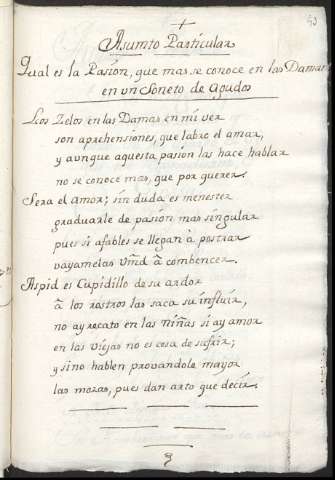 Asumto Particular
Qual es la Pasion, que mas se conoce en las Damas
en un Soneto de agudos
Los Zelos en las Damas en mi ver
son aprehensiones, que labro el amar,
y aunque aquesta pasion las hace hablar
no se conoce mas, que por querer.
Sera el amor; sin duda es menester
graduarle de pasion mas singular
pues si afables se llegan à postrar
vayamelas Vmd à combencer.
Aspid es Cupidillo de su ardor
à los rostros las saca su influir,
no ay recato en las niñas si ay amor
en las viejas no es cosa de sufrir;
y sino hablen provandole mayor
las mozas, pues dan arto que decir.